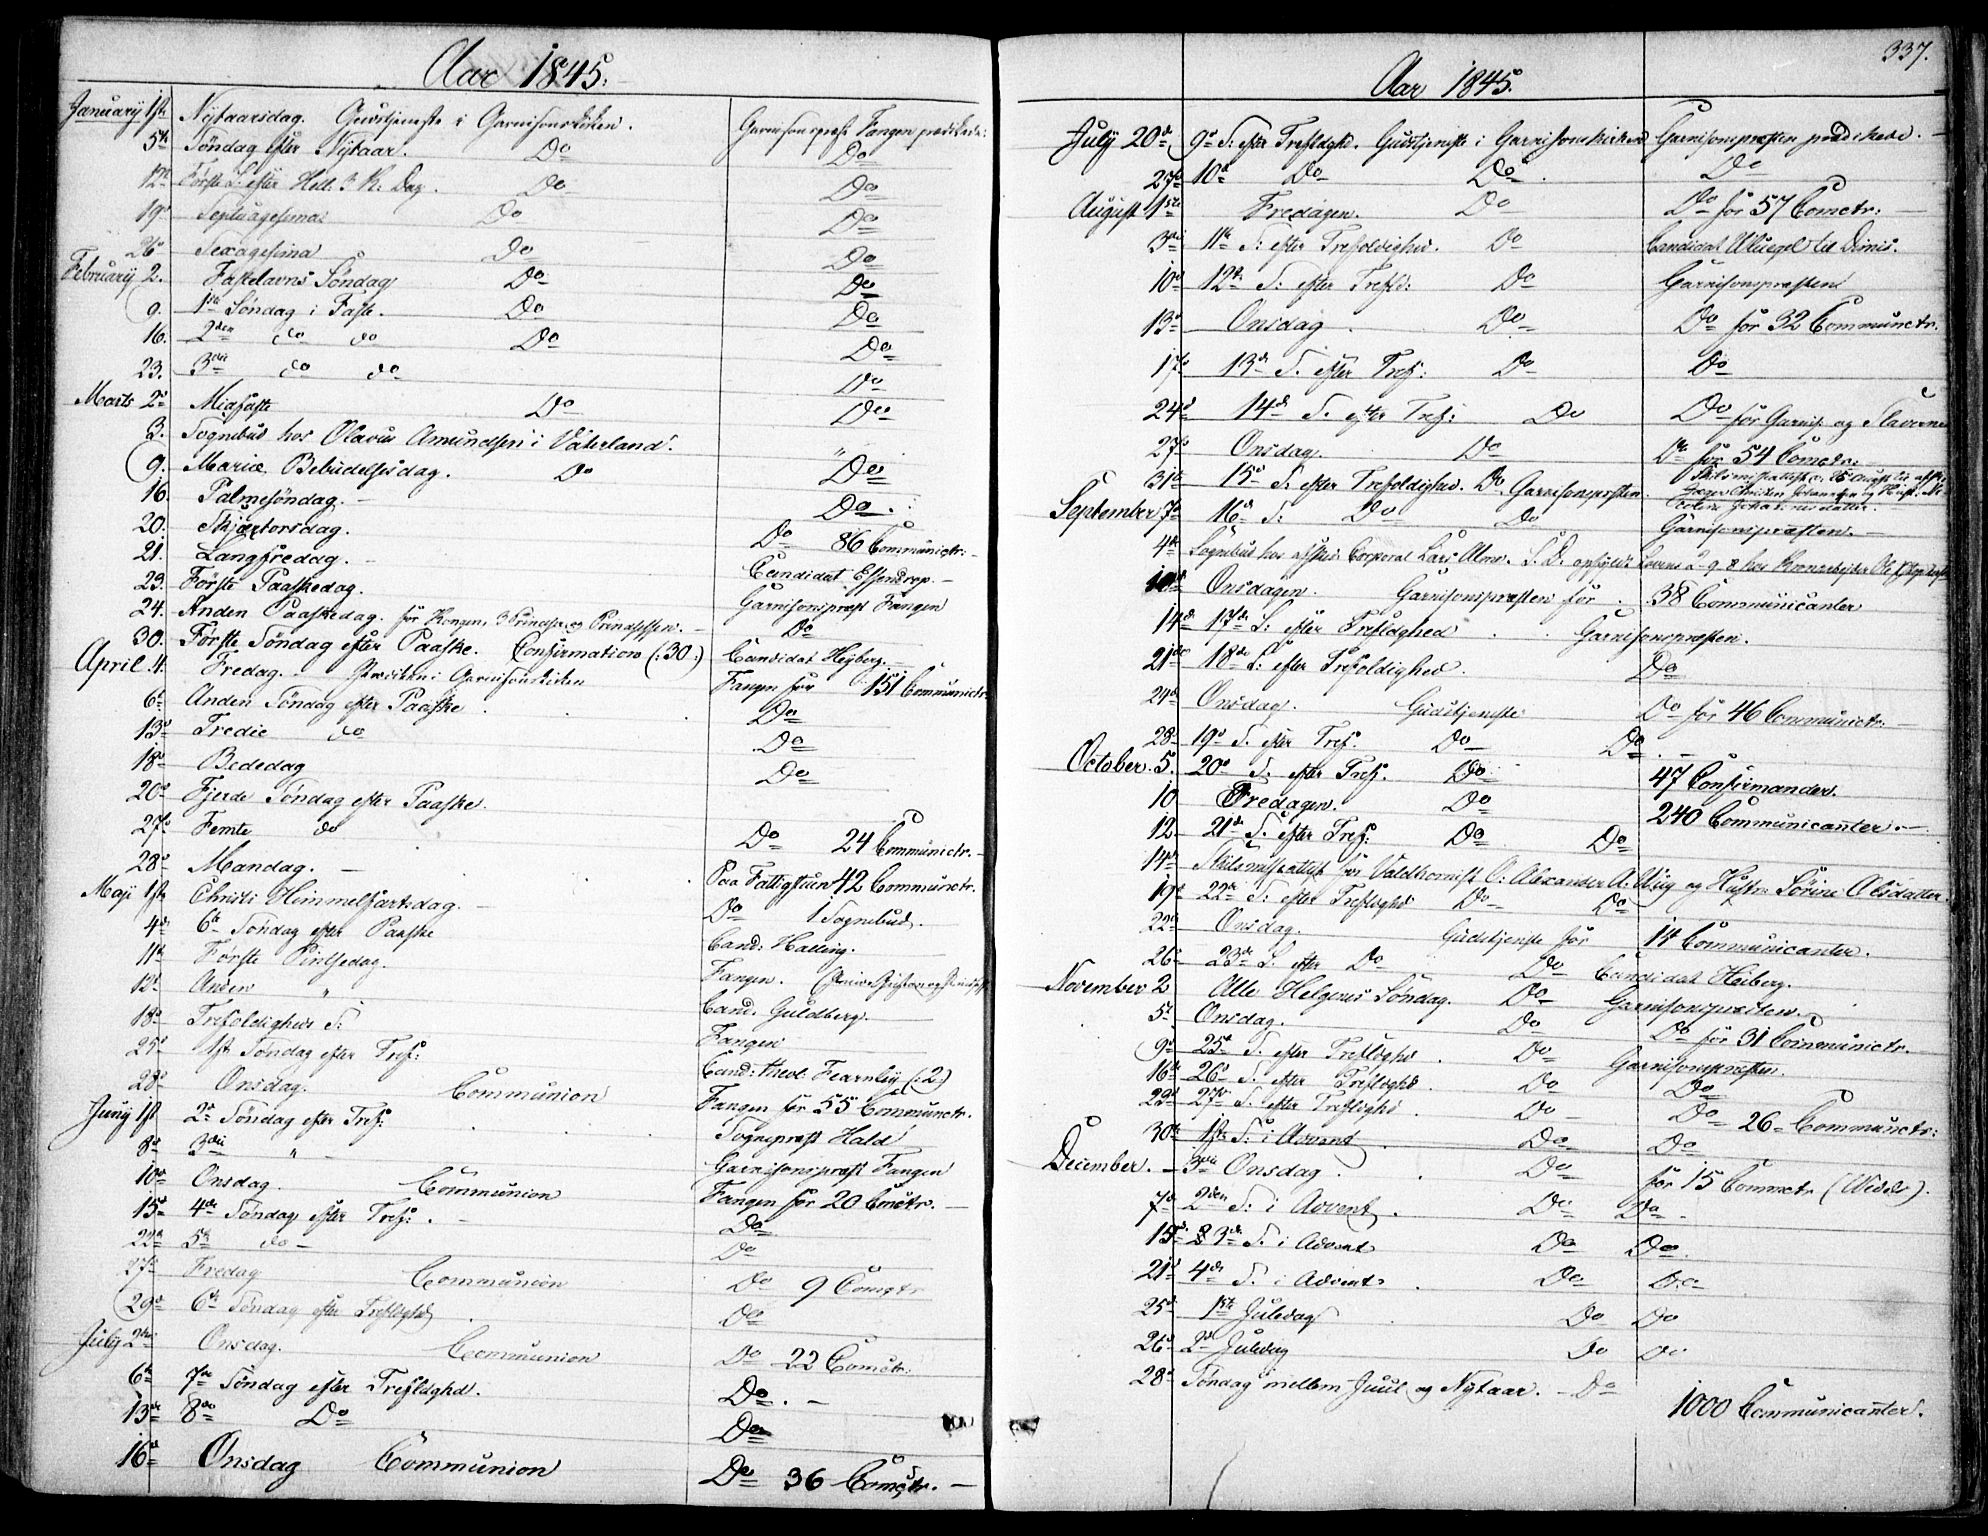 Aar 1845.
January 1ste Nytaarsdag. Gudstjeneste i Garnisonskirken. Garnisonspræst Fangen prædikede.
5te Søndag efter Nytaar. Do Do
12te Første S: efter Hell. 3 K: Dag. Do Do
19de Septuagesima Do Do
26de Sexagesima Do Do
February 2. Fastelavns Søndag Do Do
9. 1ste Søndag i Faste. Do Do
16. 2den do do Do Do
23. 3die do do Do
Marts 2de Midfaste Do Do
3. Sognebud hos Olavus Amundsen i Vaterland. "
9. Mariæ Bebudelsesdag. Do Do
16. Palmesøndag. — Do
20. Skjærtorsdag. Do 86 Communictr: —
21. Langfredag. — Candidat Essendrop. —
23. Første Paaskedag. Garnisonspræst Fangen
24. Anden Paaskedag. for Kongen, 3 Prindser og Prindsessen. — Do
30. Første Søndag efter Paaske. Confirmation (:30:) Candidat Heyberg. —
April 4. Fredag. — Præken i Garnisonskirken Fangen for 151 Communictr
6te Anden Søndag efter Paaske Do
13de Tredie do Do
18de Bededag Do
20de Fjerde Søndag efter Paaske.
27de Femte do Do 24 Communictr. —
28de Mandag. — Paa Fattigstuen 42 Communctr.
Maji 1ste Christi Himmelfartsdag. — Do 1 Sognebud.
4de 6te Søndag efter Paaske Cand: Halling.
11te Første Pintsedag. Fangen.
12te Anden " Cand. Guldberg.
18de Trefoldigheds S: Fangen
25de 1ste Søndag efter Tref: Cand: theol: Fearnley (:2)
28de Onsdag. Communion Fangen for 55 Communctr.
Juny 1ste 2den Søndag efter Tref: Sognepræst Hald
8de 3die " — Garnisonspræst Fangen
10de Onsdag. Communion Fangen for 20 Comctr. —
15de 4de Søndag efter Tref: . — Do
22de 5te do — Do
27de Fredag Communion Do 9 Comctr
29de 6te Søndag efter Trefldghd Do
July 2den Onsdag. Communion Do 22 Comctr:
6te 7de Søndag efter Trefldghd. Do. —
13de 8de Do Do
16de Onsdag Communion Do 36 Comctr. —
337.
Aar 1845.
July 20de 9de S: efter Trefldghd. Gudstjeneste i Garnisonskirken Garnisonspræsten prædikede. —
27de 10de Do Do Do
August 1ste Fredagen. Do Do for 57 Comctr: —
3die 11te S: efter Trefoldighed. Do Candidat Wluegel til Dimis.
10de 12te S: efter Trefld: Do Garnisonspræsten
13de Onsdag. Do Do for 32 Communctr.
17de 13de S. efter Tref: Do Do
24de 14de S. efter Tref: Do Do for Garnis. og Slaverne
27de Onsdag. Do Do for 54 Comctr:
31te 15de S. efter Trefoldighed. Do Garnisonspræsten
September 7de 16de S: Do Do Garnisonspræsten. —
4de Sognebud hos afskd. Corporal Lars Olsen.
10de Onsdagen. Garnisonspræsten for 38 Communicanter
14de 17de S: efter Trefldghed Garnisonspræsten.
21de 18de S: efter Trefoldighed. Do
24de Onsdag. Gudstjeneste Do for 46 Communictr: —
28de 19de S. efter Tref. Do Do . —
October 5. 20de S. efter Tref. Do 47 Confirmander.
10 Fredagen. Do 240 Communicanter. —
12 21de S. efter Tref: Do Do
14de Skilsmisseattest for Valdhornist O: Alexander A: Wiig og Hustru Sørine Olsdatter.
19de 22de S: efter Trefldghd Do Do
22de Onsdag. Gudstjeneste for 14 Communicanter.
26de 23de S. efter Do Do Candidat Heiberg.
November 2 Alle Helgens Søndag. Do Garnisonspræsten.
5te Onsdag. Do Do for 31 Communictr.
9de 25de S. efter Trefldghd . Do Garnisonspræsten.
16de 26de S. efter Trefldghd . Do Do
23de 27de S. efter Trefldghd . Do — Do 26 Communctr:
30te 1ste S: i Advent . Do Do
December. — 3die Onsdag . Do for 15 Commctr
7de 2den S: i Advent . Do Do —
15de 3de S. i Advent Do Do.
21de 4de S. i Advent Do Do
25de 1ste Juledag Do Do
26de 2de Juledag Do Do
28de Søndag mellem Juul og Nytaar. — Do
1000 Communicanter.